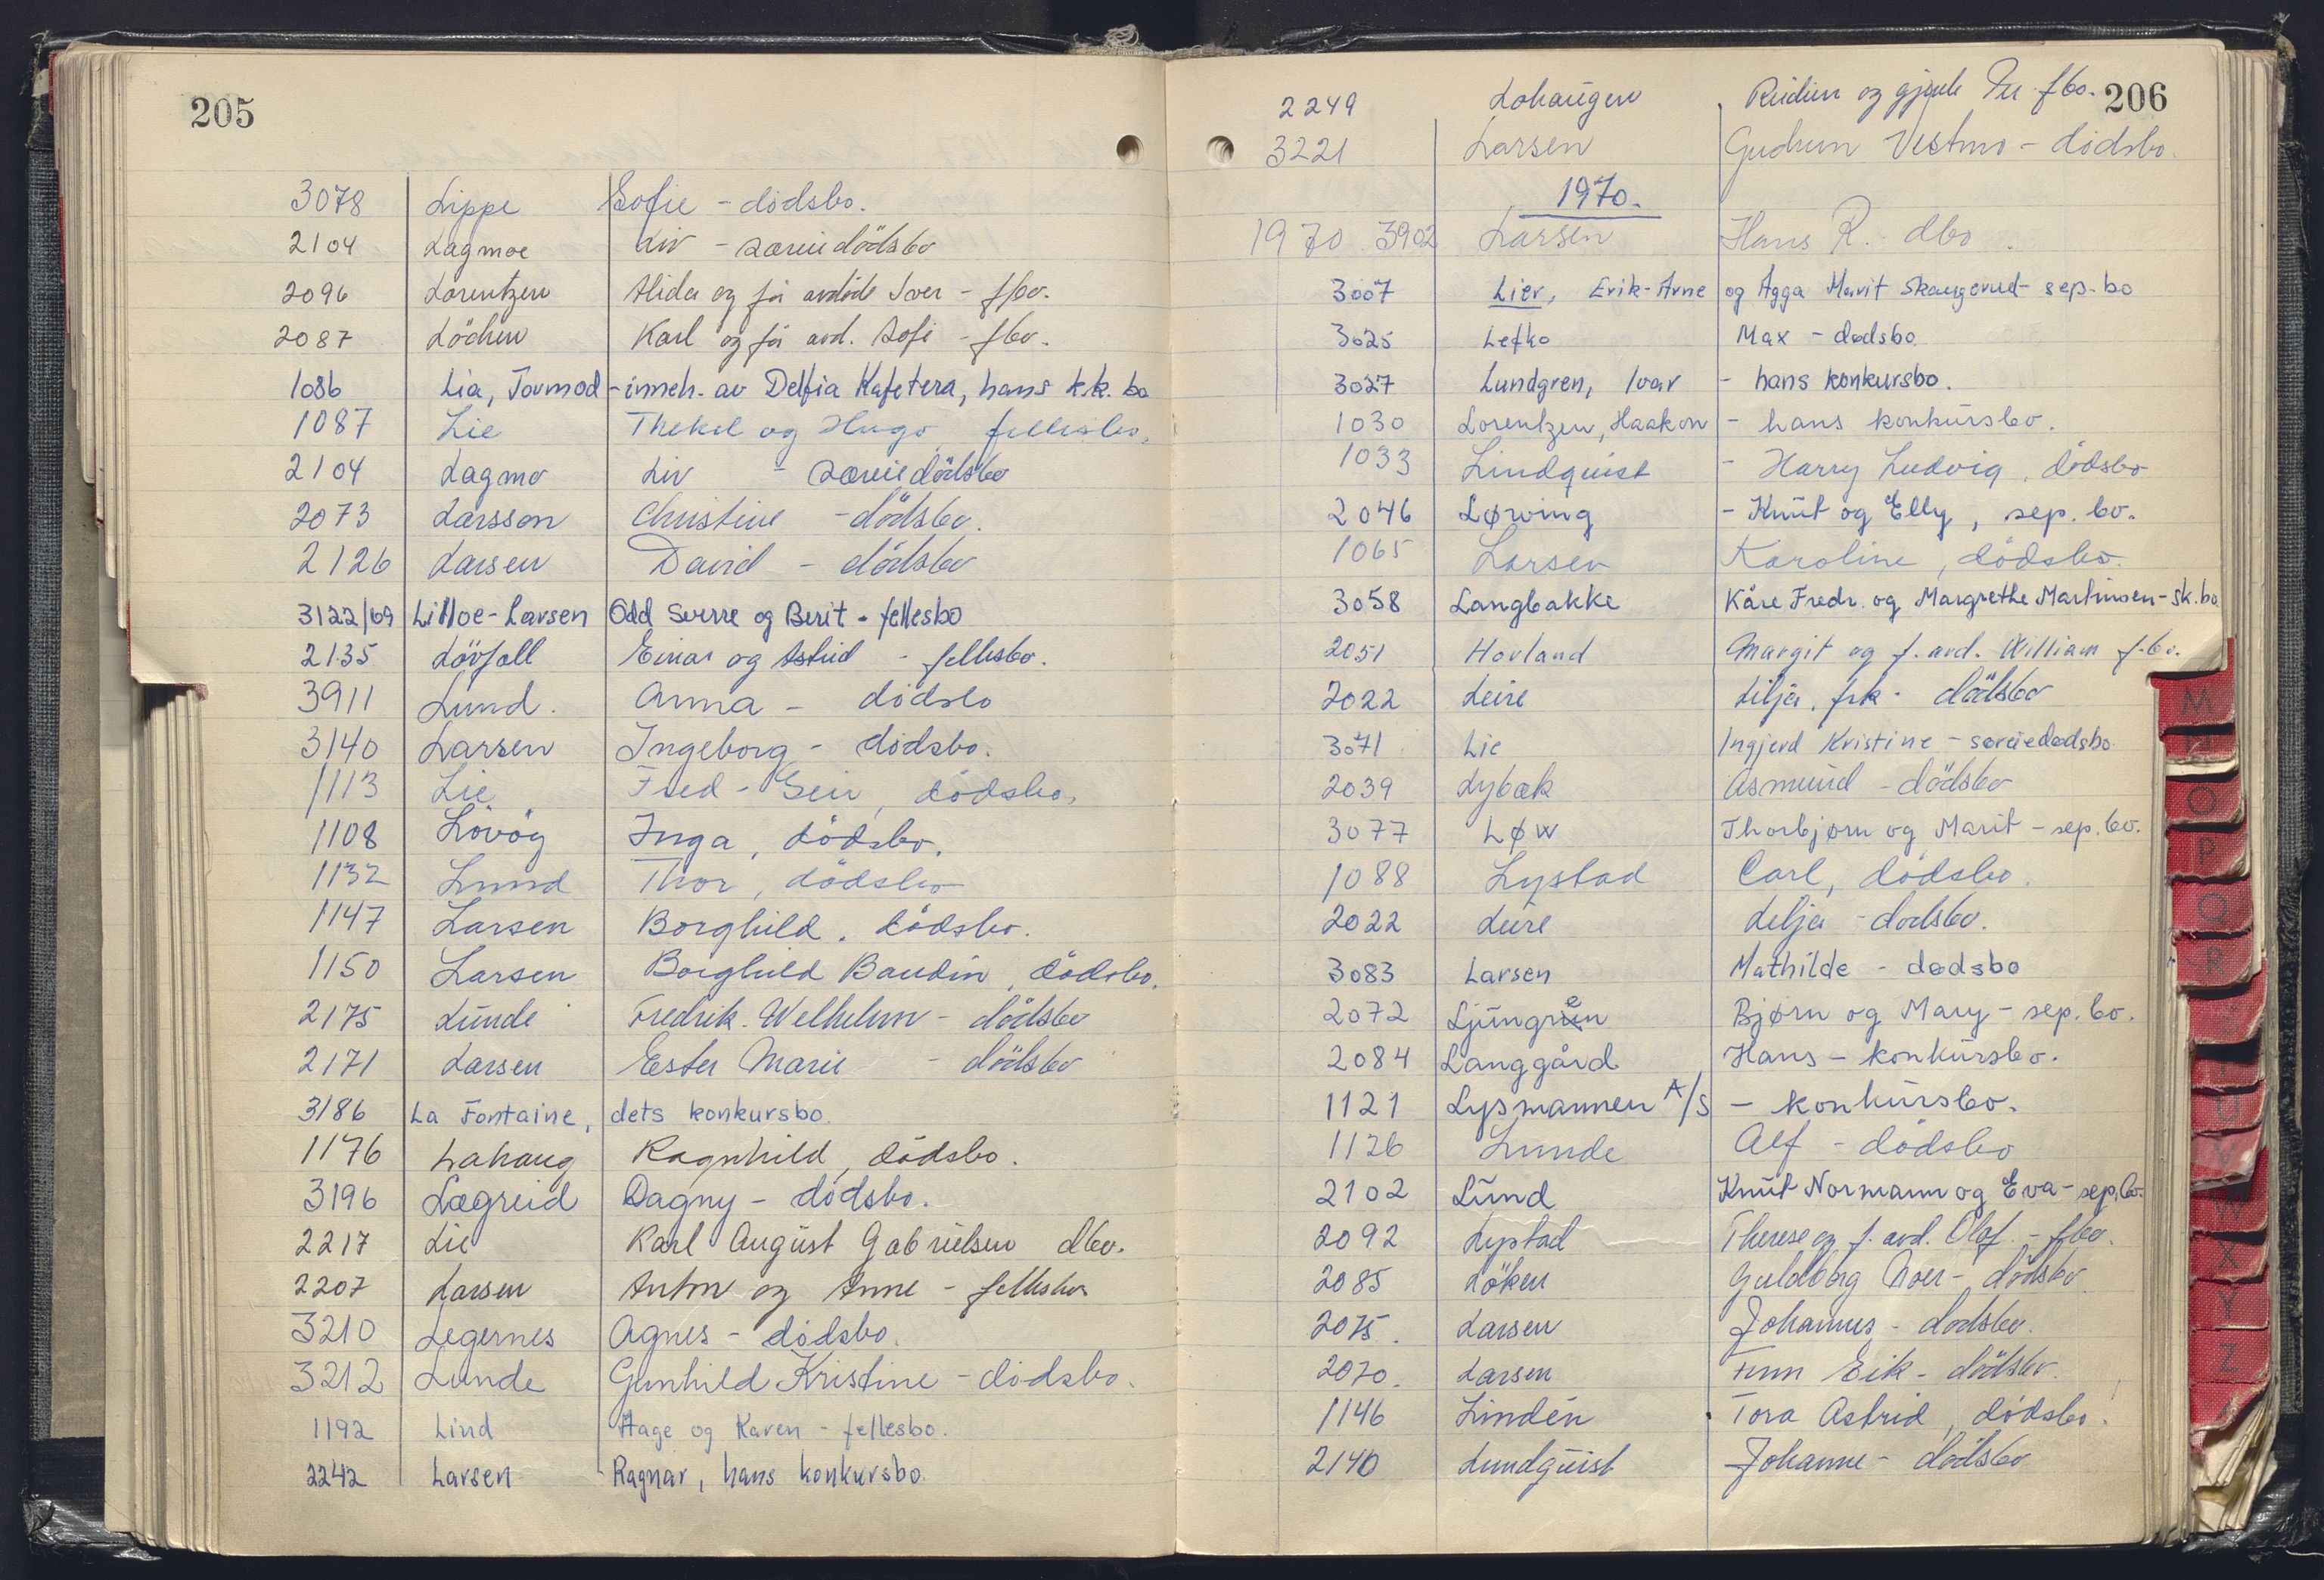 205
3078 Lippe Sofie - dödsbo.
2104 Lagmoe Liv - særeiedödsbo
2096 Lorentzen Alida og før avdøde Iver - f.bo.
2087 Löchen Karl og før avd. Sofi - fbo.
1086 Lia, Tormod - inneh. av Delfia Kafetera, hans k.k. bo
1087 Lie Thekel og Hugo, fellesbo.
2104 Lagmo Liv - særeiedödsbo
2073 Larsson Christine - dödsbo.
2126 Larsen David - dödsbo
3122/69 Lilloe-Larsen Odd Sverre og Berit - fellesbo
2135 Lövfall Einar og Astrid - fellesbo.
3911 Lund. Anna - dödsbo
3140 Larsen Ingeborg - dödsbo.
1113 Lie Fred-Geir, dödsbo.
1108 Lövög Inga, dödsbo.
1132 Lund Thor, dödsbo
1147 Larsen Borghild, dödsbo.
1150 Larsen Borghild Baudin, dödsbo.
2175 Lunde Fredrik Welhelm - dödsbo
2171 Larsen Ester Marie - dödsbo
3186 La Fontaine, dets konkursbo.
1176 Lahaug Ragnhild, dödsbo.
3196 Lægreid Dagny - dödsbo.
2217 Lie Karl August Gabrielsen dbo.
2207 Larsen Anton og Anne - fellesbo
3210 Legernes Agnes - dödsbo.
3212 Lunde Gunhild Kristine - dödsbo.
1192 Lind Hage og Karen - fellesbo.
2242 Larsen Ragnar, hans konkursbo.
206
2249 Lohaugen og fbo.
3221 Larsen Gudrun Vestmo - dödsbo.
1970.
1970 3902 Larsen Hans R. dbo.
3007 Lier, Erik-Arne og Agga Marit Skaugerud - sep.bo
3025 Lefko Max - dødsbo.
3027 Lundgren, Ivar - hans konkursbo.
1030 Lorentzen, Haakon - hans konkursbo.
1033 Lindquist - Harry Ludvig, dödsbo
2046 Lørving - Knut og Elly, sep. bo.
1065 Larsen Karoline, dödsbo.
3058 Langbakke Kåre Fredr. og Margrethe Martinsen - sk.bo
2051 Hovland Margit og f. avd. William f.bo.
2022 Leire Lilja, frk. dödsbo
3071 Lie Ingjerd Kristine - særeiedødsbo
2039 Lybæk Asmund - dödsbo
3077 Løw Thorbjørn og Marit - sep. bo.
1088 Lystad Carl, dödsbo.
2022 Leire Lilja - dödsbo.
3083 Larsen Mathilde - dødsbo
2072 Ljungren Bjørn og Mary - sep. bo.
2084 Langgård Hans - konkursbo.
1121 Lysmannen A/S - konkursbo.
1126 Lunde Alf - dödsbo
2102 Lund Knut Normann og Eva - sep.bo.
2092 Lystad Therese og f. avd. Olaf. - fbo.
2085 Löken Guldborg Moer - dödsbo
2075. Larsen Johannes - dödsbo.
2070. Larsen Finn Eik - dödsbo.
1146 Lindén Tora Astrid, dödsbo.
2140 Lundquist Johanne - dödsbo
M
N
O
P
Q
R
T
U
V
W
X
Y
Z